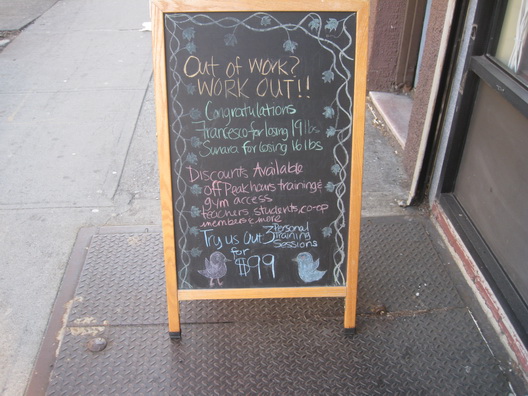 Out of Work?
WORK OUT!!
Congratulations
Francesco for losing 19 lbs
Sunara for losing 16 lbs
Discounts Available
off Peak hours training &
gym access
teachers, students, co-op
members & more
Try us Out 3 Personal Training Sessions
for
$99